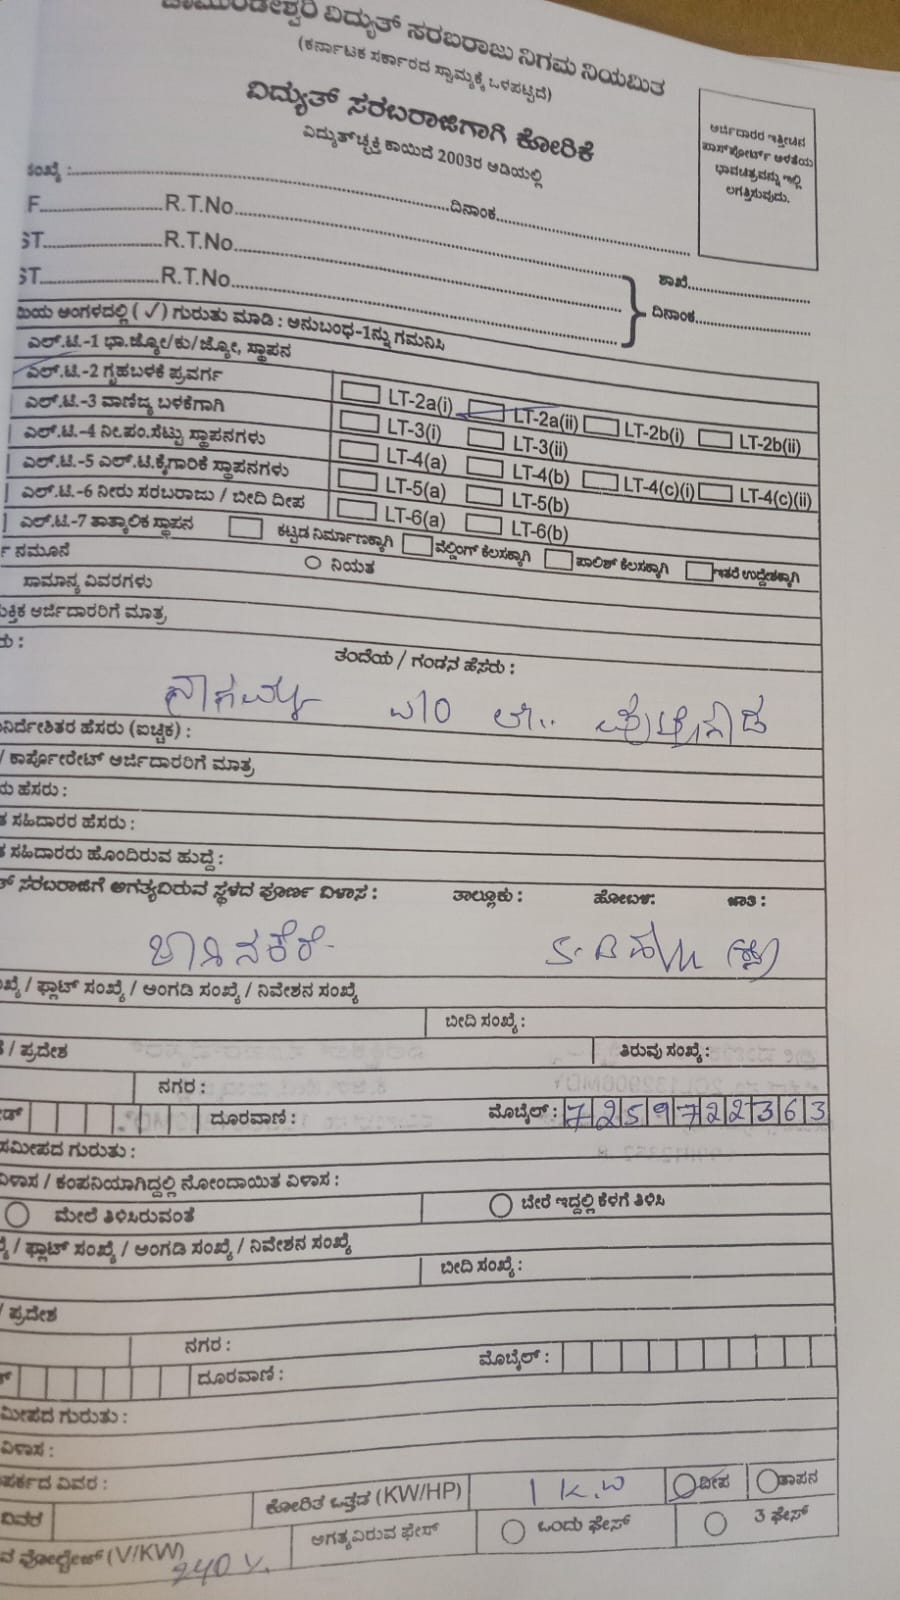 ಚಾಮುಂಡೇಶ್ವರಿ ವಿದ್ಯುತ್ ಸರಬರಾಜು ನಿಗಮ ನಿಯಮಿತ
(ಕರ್ನಾಟಕ ಸರ್ಕಾರದ ಸ್ವಾಮ್ಯಕ್ಕೆ ಒಳಪಟ್ಟಿದೆ)
ವಿದ್ಯುತ್ ಸರಬರಾಜಿಗಾಗಿ ಕೋರಿಕೆ
ವಿದ್ಯುತ್‌ಚ್ಛಕ್ತಿ ಕಾಯಿದೆ 2003ರ ಅಡಿಯಲ್ಲಿ
ಅರ್ಜಿದಾರರ ಇತ್ತೀಚಿನ
ಪಾಸ್‌ಪೋರ್ಟ್ ಅಳತೆಯ
ಭಾವಚಿತ್ರವನ್ನು ಇಲ್ಲಿ
ಲಗತ್ತಿಸುವುದು.
ಸಂಖ್ಯೆ : ದಿನಾಂಕ
F R.T.No
ST R.T.No ಶಾಖೆ
ST R.T.No ದಿನಾಂಕ
ಅಂಗಳದಲ್ಲಿ ( ✓ ) ಗುರುತು ಮಾಡಿ : ಅನುಬಂಧ-1ನ್ನು ಗಮನಿಸಿ
ಎಲ್.ಟಿ.-1 ಭಾ.ಜ್ಯೋ/ಕು/ಜ್ಯೋ, ಸ್ಥಾಪನ
ಎಲ್.ಟಿ.-2 ಗೃಹಬಳಕೆ ಪ್ರವರ್ಗ LT-2a(i) LT-2a(ii) LT-2b(i) LT-2b(ii)
ಎಲ್.ಟಿ.-3 ವಾಣಿಜ್ಯ ಬಳಕೆಗಾಗಿ LT-3(i) LT-3(ii)
ಎಲ್.ಟಿ.-4 ನೀ.ಪಂ.ಸೆಟ್ಟು ಸ್ಥಾಪನಗಳು LT-4(a) LT-4(b) LT-4(c)(i) LT-4(c)(ii)
ಎಲ್.ಟಿ.-5 ಎಲ್.ಟಿ.ಕೈಗಾರಿಕೆ ಸ್ಥಾಪನಗಳು LT-5(a) LT-5(b)
ಎಲ್.ಟಿ.-6 ನೀರು ಸರಬರಾಜು / ಬೀದಿ ದೀಪ LT-6(a) LT-6(b)
ಎಲ್.ಟಿ.-7 ತಾತ್ಕಾಲಿಕ ಸ್ಥಾಪನ ಕಟ್ಟಡ ನಿರ್ಮಾಣಕ್ಕಾಗಿ ವೆಲ್ಡಿಂಗ್ ಕೆಲಸಕ್ಕಾಗಿ ಪಾಲಿಶ್ ಕೆಲಸಕ್ಕಾಗಿ ಇತರೆ ಉದ್ದೇಶಕ್ಕಾಗಿ
ನಮೂನೆ ನಿಯತ
ಸಾಮಾನ್ಯ ವಿವರಗಳು
ಅರ್ಜಿದಾರರಿಗೆ ಮಾತ್ರ
ತಂದೆಯ / ಗಂಡನ ಹೆಸರು :
ನಿರ್ದೇಶಿತರ ಹೆಸರು (ಐಚ್ಚಿಕ) :
/ ಕಾರ್ಪೋರೇಟ್ ಅರ್ಜಿದಾರರಿಗೆ ಮಾತ್ರ
ಯ ಹೆಸರು :
ಸಹಿದಾರರ ಹೆಸರು :
ಸಹಿದಾರರು ಹೊಂದಿರುವ ಹುದ್ದೆ :
ಸರಬರಾಜಿಗೆ ಅಗತ್ಯವಿರುವ ಸ್ಥಳದ ಪೂರ್ಣ ವಿಳಾಸ : ತಾಲ್ಲೂಕು : ಹೋಬಳಿ: ಜಾತಿ :
/ ಫ್ಲಾಟ್ ಸಂಖ್ಯೆ / ಅಂಗಡಿ ಸಂಖ್ಯೆ / ನಿವೇಶನ ಸಂಖ್ಯೆ
ಬೀದಿ ಸಂಖ್ಯೆ :
/ ಪ್ರದೇಶ ತಿರುವು ಸಂಖ್ಯೆ :
ನಗರ :
ದೂರವಾಣಿ : ಮೊಬೈಲ್ : 7259722363
ಸಮೀಪದ ಗುರುತು :
ವಿಳಾಸ / ಕಂಪನಿಯಾಗಿದ್ದಲ್ಲಿ ನೋಂದಾಯಿತ ವಿಳಾಸ :
ಮೇಲೆ ತಿಳಿಸಿರುವಂತೆ ಬೇರೆ ಇದ್ದಲ್ಲಿ ಕೆಳಗೆ ತಿಳಿಸಿ
/ ಫ್ಲಾಟ್ ಸಂಖ್ಯೆ / ಅಂಗಡಿ ಸಂಖ್ಯೆ / ನಿವೇಶನ ಸಂಖ್ಯೆ
ಬೀದಿ ಸಂಖ್ಯೆ :
/ ಪ್ರದೇಶ
ನಗರ :
ದೂರವಾಣಿ : ಮೊಬೈಲ್ :
ಮೀಪದ ಗುರುತು :
ವಿಳಾಸ :
ಪರ್ಕದ ವಿವರ :
ವಿವರ ಕೋರಿತ ಒತ್ತಡ (KW/HP) 1 K.W ದೀಪ ತಾಪನ
ವೋಲ್ಟೇಜ್ (V/KW) 240 V. ಅಗತ್ಯವಿರುವ ಫೇಸ್ ಒಂದು ಫೇಸ್ 3 ಫೇಸ್